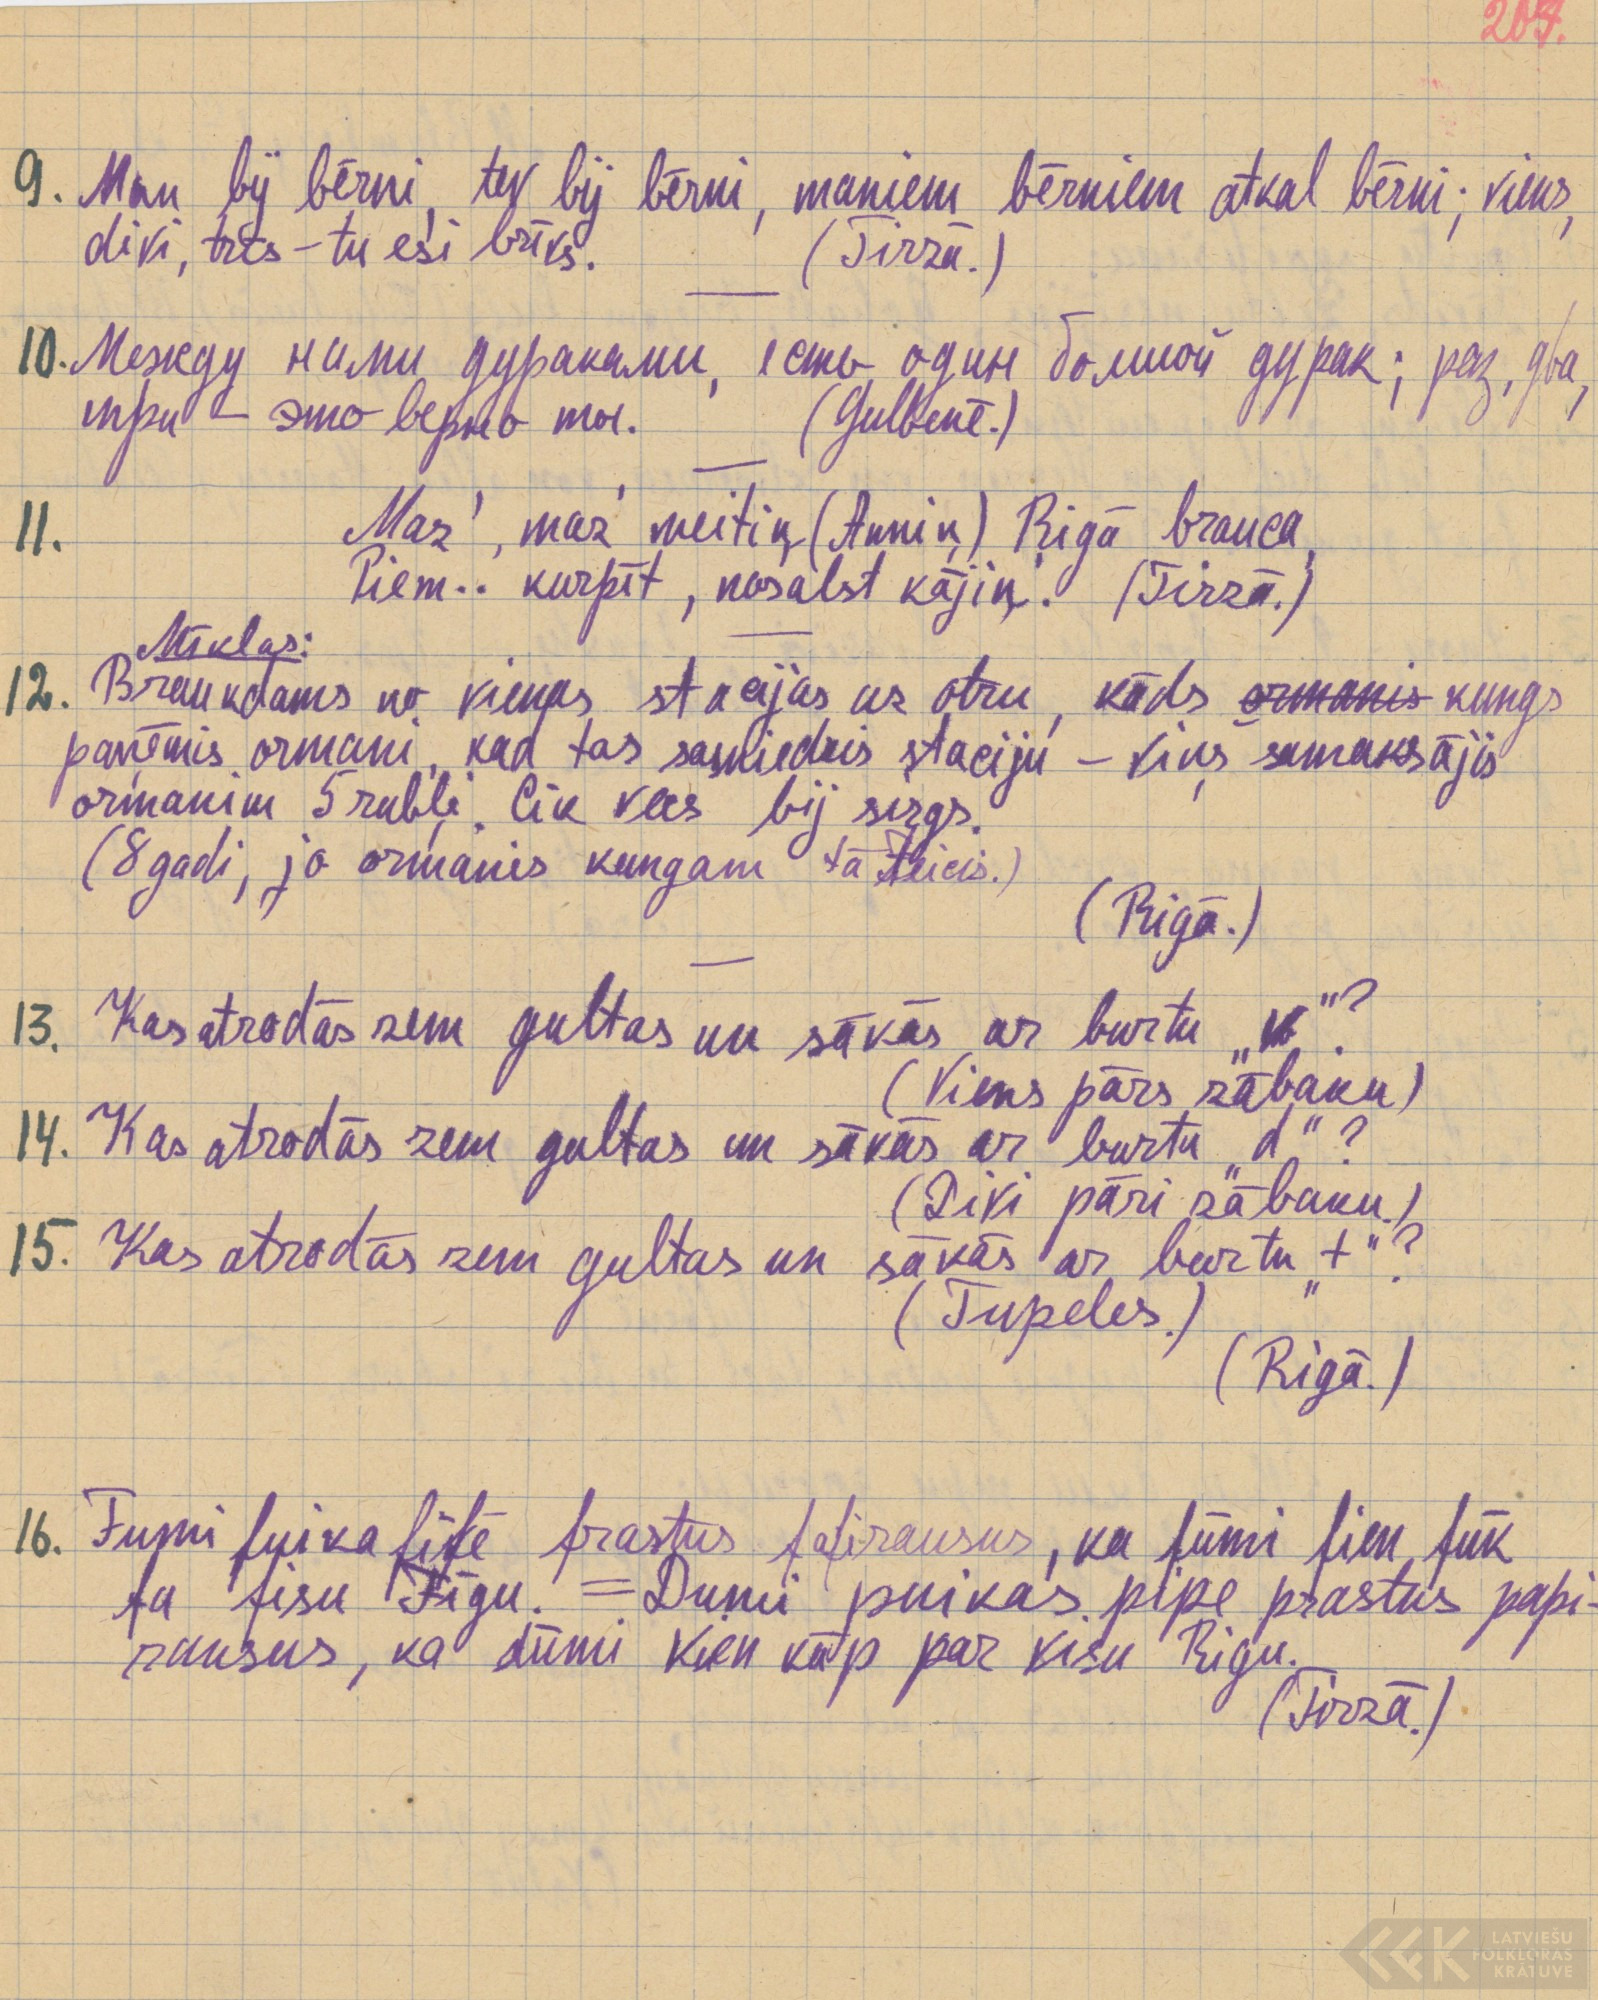 207.
9. Man bij bērni, tev bij bērni, maniem bērniem atkal bērni; viens,
divi, trīs - tu esi brīvs. (Tirzā.)
10. Между нами дураками, есть один болшой дурак; раз, два,
три - это верно ты. (Gulbenē.)
11. Maz', maz' meitiņ (Anniņ) Rīgā brauca,
Piem.. kurpīt, nosalst kājiņ. (Tirzā.)
Mīklas:
12. Braukdams no vienas stacijas uz otru, kāds ormanis kungs
paņēmis ormani, kad tas sasniedzis staciju - viņš samaksājis
ormanim 5 rubļi. Cik vecs bij zirgs.
(8 gadi, jo ormanis kungam tā teicis.)
(Rīgā.)
13. Kas atrodās zem gultas un sākās ar burtu „v"?
(Viens pārs zābaku)
14. Kas atrodās zem gultas un sākās ar burtu „d"?
(Divi pāri zābaku.)
15. Kas atrodās zem gultas un sākās ar burtu „t"?
(Tupeles.)
(Rīgā.)
16. Fumi fuika fīfē frastus fafirausus, ka fūmi fien fūk
fa fisu Fīgu. = Dumi puikas pīpē prastus papi-
rausus, ka dūmi vien kūp par visu Rīgu.
(Tirzā.)
LATVIEŠU
FOLKLORAS
KRĀTUVE